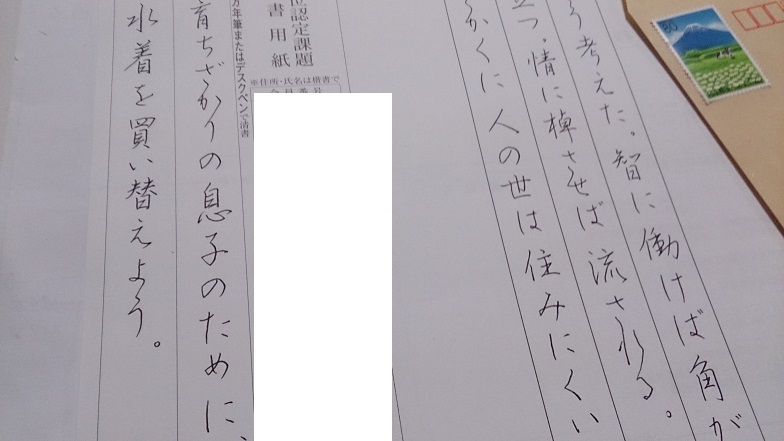 う考えた。智に働けば角が
立つ。情に棹させば流される。
かくに人の世は住みにくい
位認定課題
書用紙
※住所・氏名は楷書で
万年筆またはデスクペンで清書
育ちざかりの息子のために、
水着を買い替えよう。